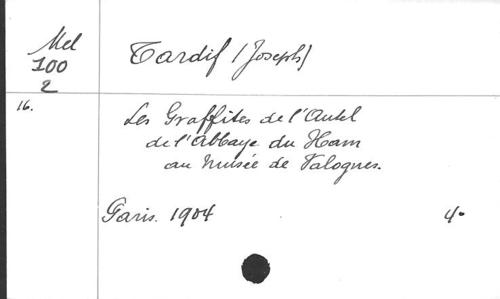 Mel
100
2
Tardif (Joseph)
16.
Les Graffites de l'Autel
de l'Abbaye du Ham
au Musée de Valognes.
Paris. 1904
4°